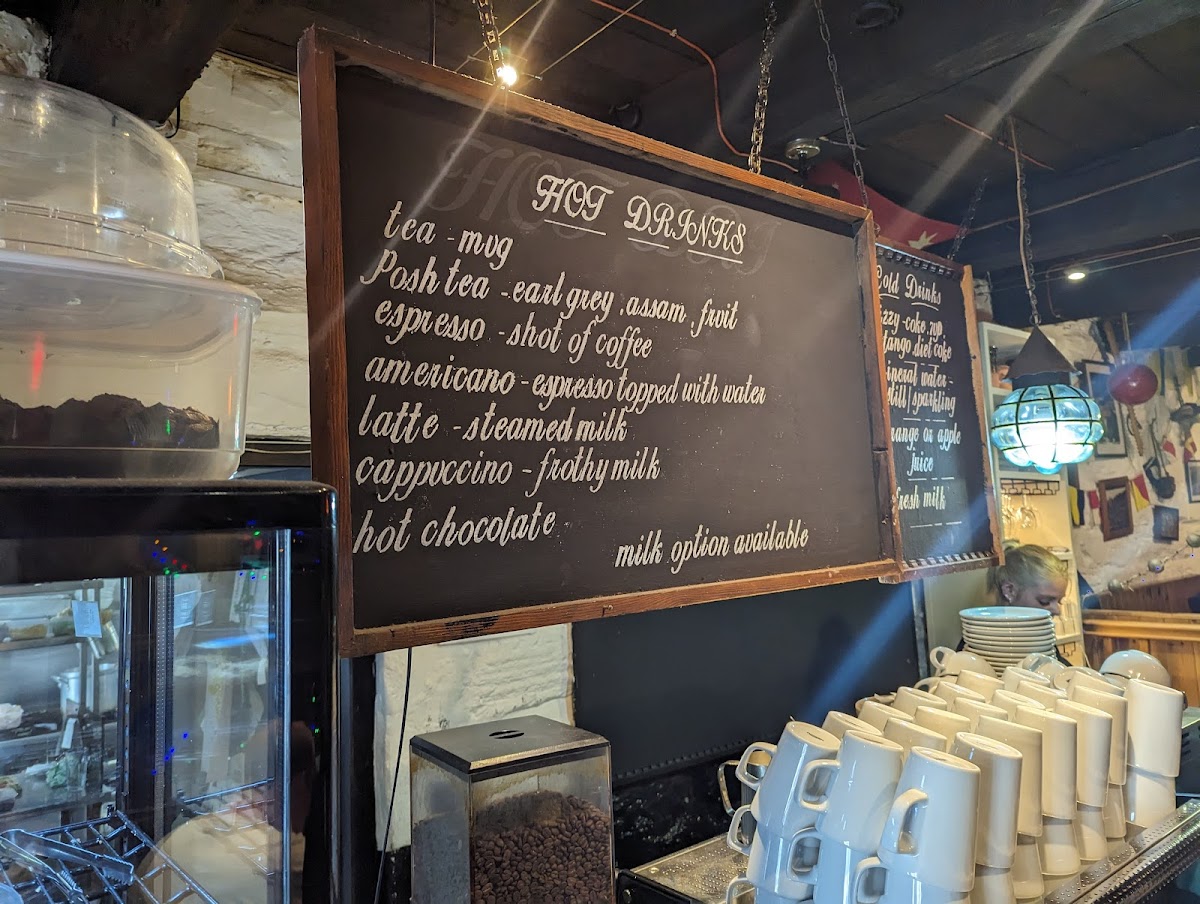 HOT DRINKS
tea - mug
Posh tea - earl grey . assam . fruit
espresso - shot of coffee
americano - espresso topped with water
latte - steamed milk
cappuccino - frothy milk
hot chocolate
milk option available
Cold Drinks
-coke .7up
tango.diet coke
water -
sparkling
or apple
juice
fresh milk